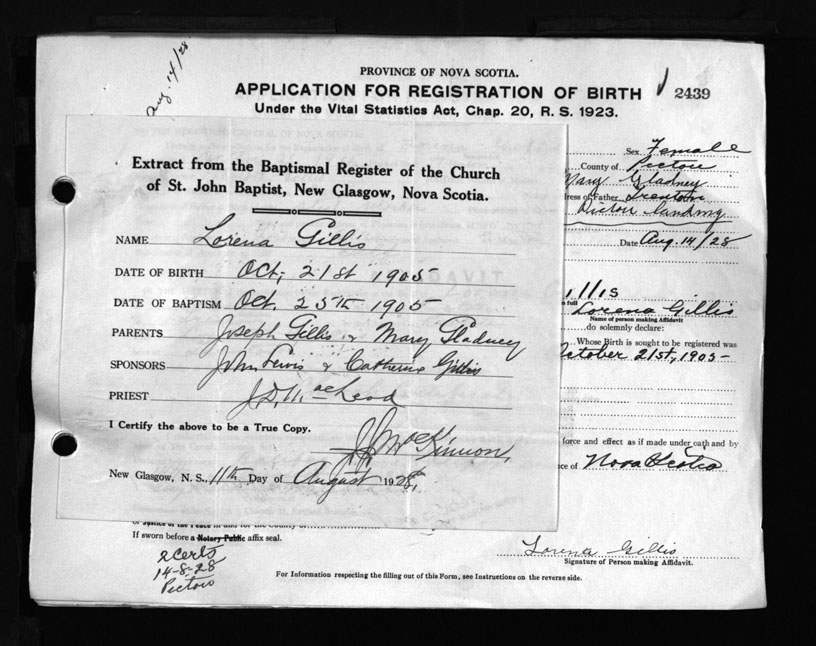 Aug. 14/28
PROVINCE OF NOVA SCOTIA.
APPLICATION FOR REGISTRATION OF BIRTH
2439
Under the Vital Statistics Act, Chap. 20, R. S. 1923.
Extract from the Baptismal Register of the Church
of St. John Baptist, New Glasgow, Nova Scotia.
NAME Lorena Gillis
DATE OF BIRTH Oct, 21st 1905
DATE OF BAPTISM Oct. 25th 1905
PARENTS Joseph Gillis & Mary Gladney
SPONSORS John Lewis & Catherine Gillis
PRIEST J.D. MacLeod
I Certify the above to be a True Copy.
J.J. McKinnon,
New Glasgow, N. S., 11th Day of August 1928.
Sex Female
County of Pictou
Mary Gladney
of Father Trenton
Pictou
Date Aug. 14/28
full Lorena Gillis
Name of person making Affidavit
do solemnly declare:
Whose Birth is sought to be registered was
October 21st, 1905
force and effect as if made under oath and by
of Nova Scotia
of Justice of the Peace in and for the County of
If sworn before a Notary Public affix seal.
2 Certs
14-8-28
Pictou
Lorena Gillis
Signature of Person making Affidavit.
For Information respecting the filling out of this Form, see Instructions on the reverse side.